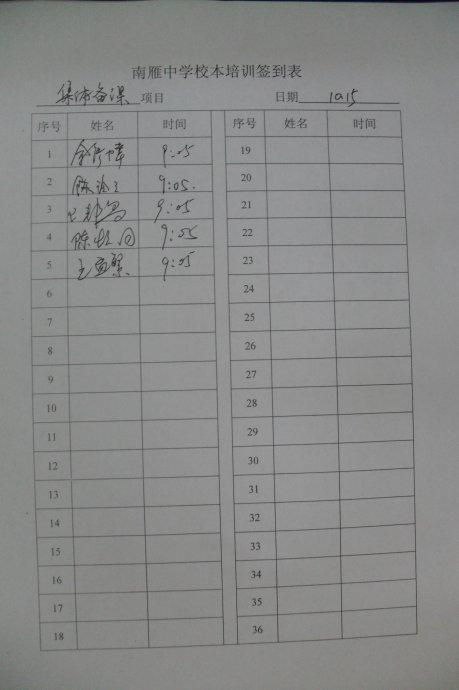 南雁中学校本培训签到表
集体备课 项目 日期 10.15
序号 姓名 时间 序号 姓名 时间
1 9:05 19
2 9:05. 20
3 9:05 21
4 9:05 22
5 9:05 23
6 24
7 25
8 26
9 27
10 28
11 29
12 30
13 31
14 32
15 33
16 34
17 35
18 36